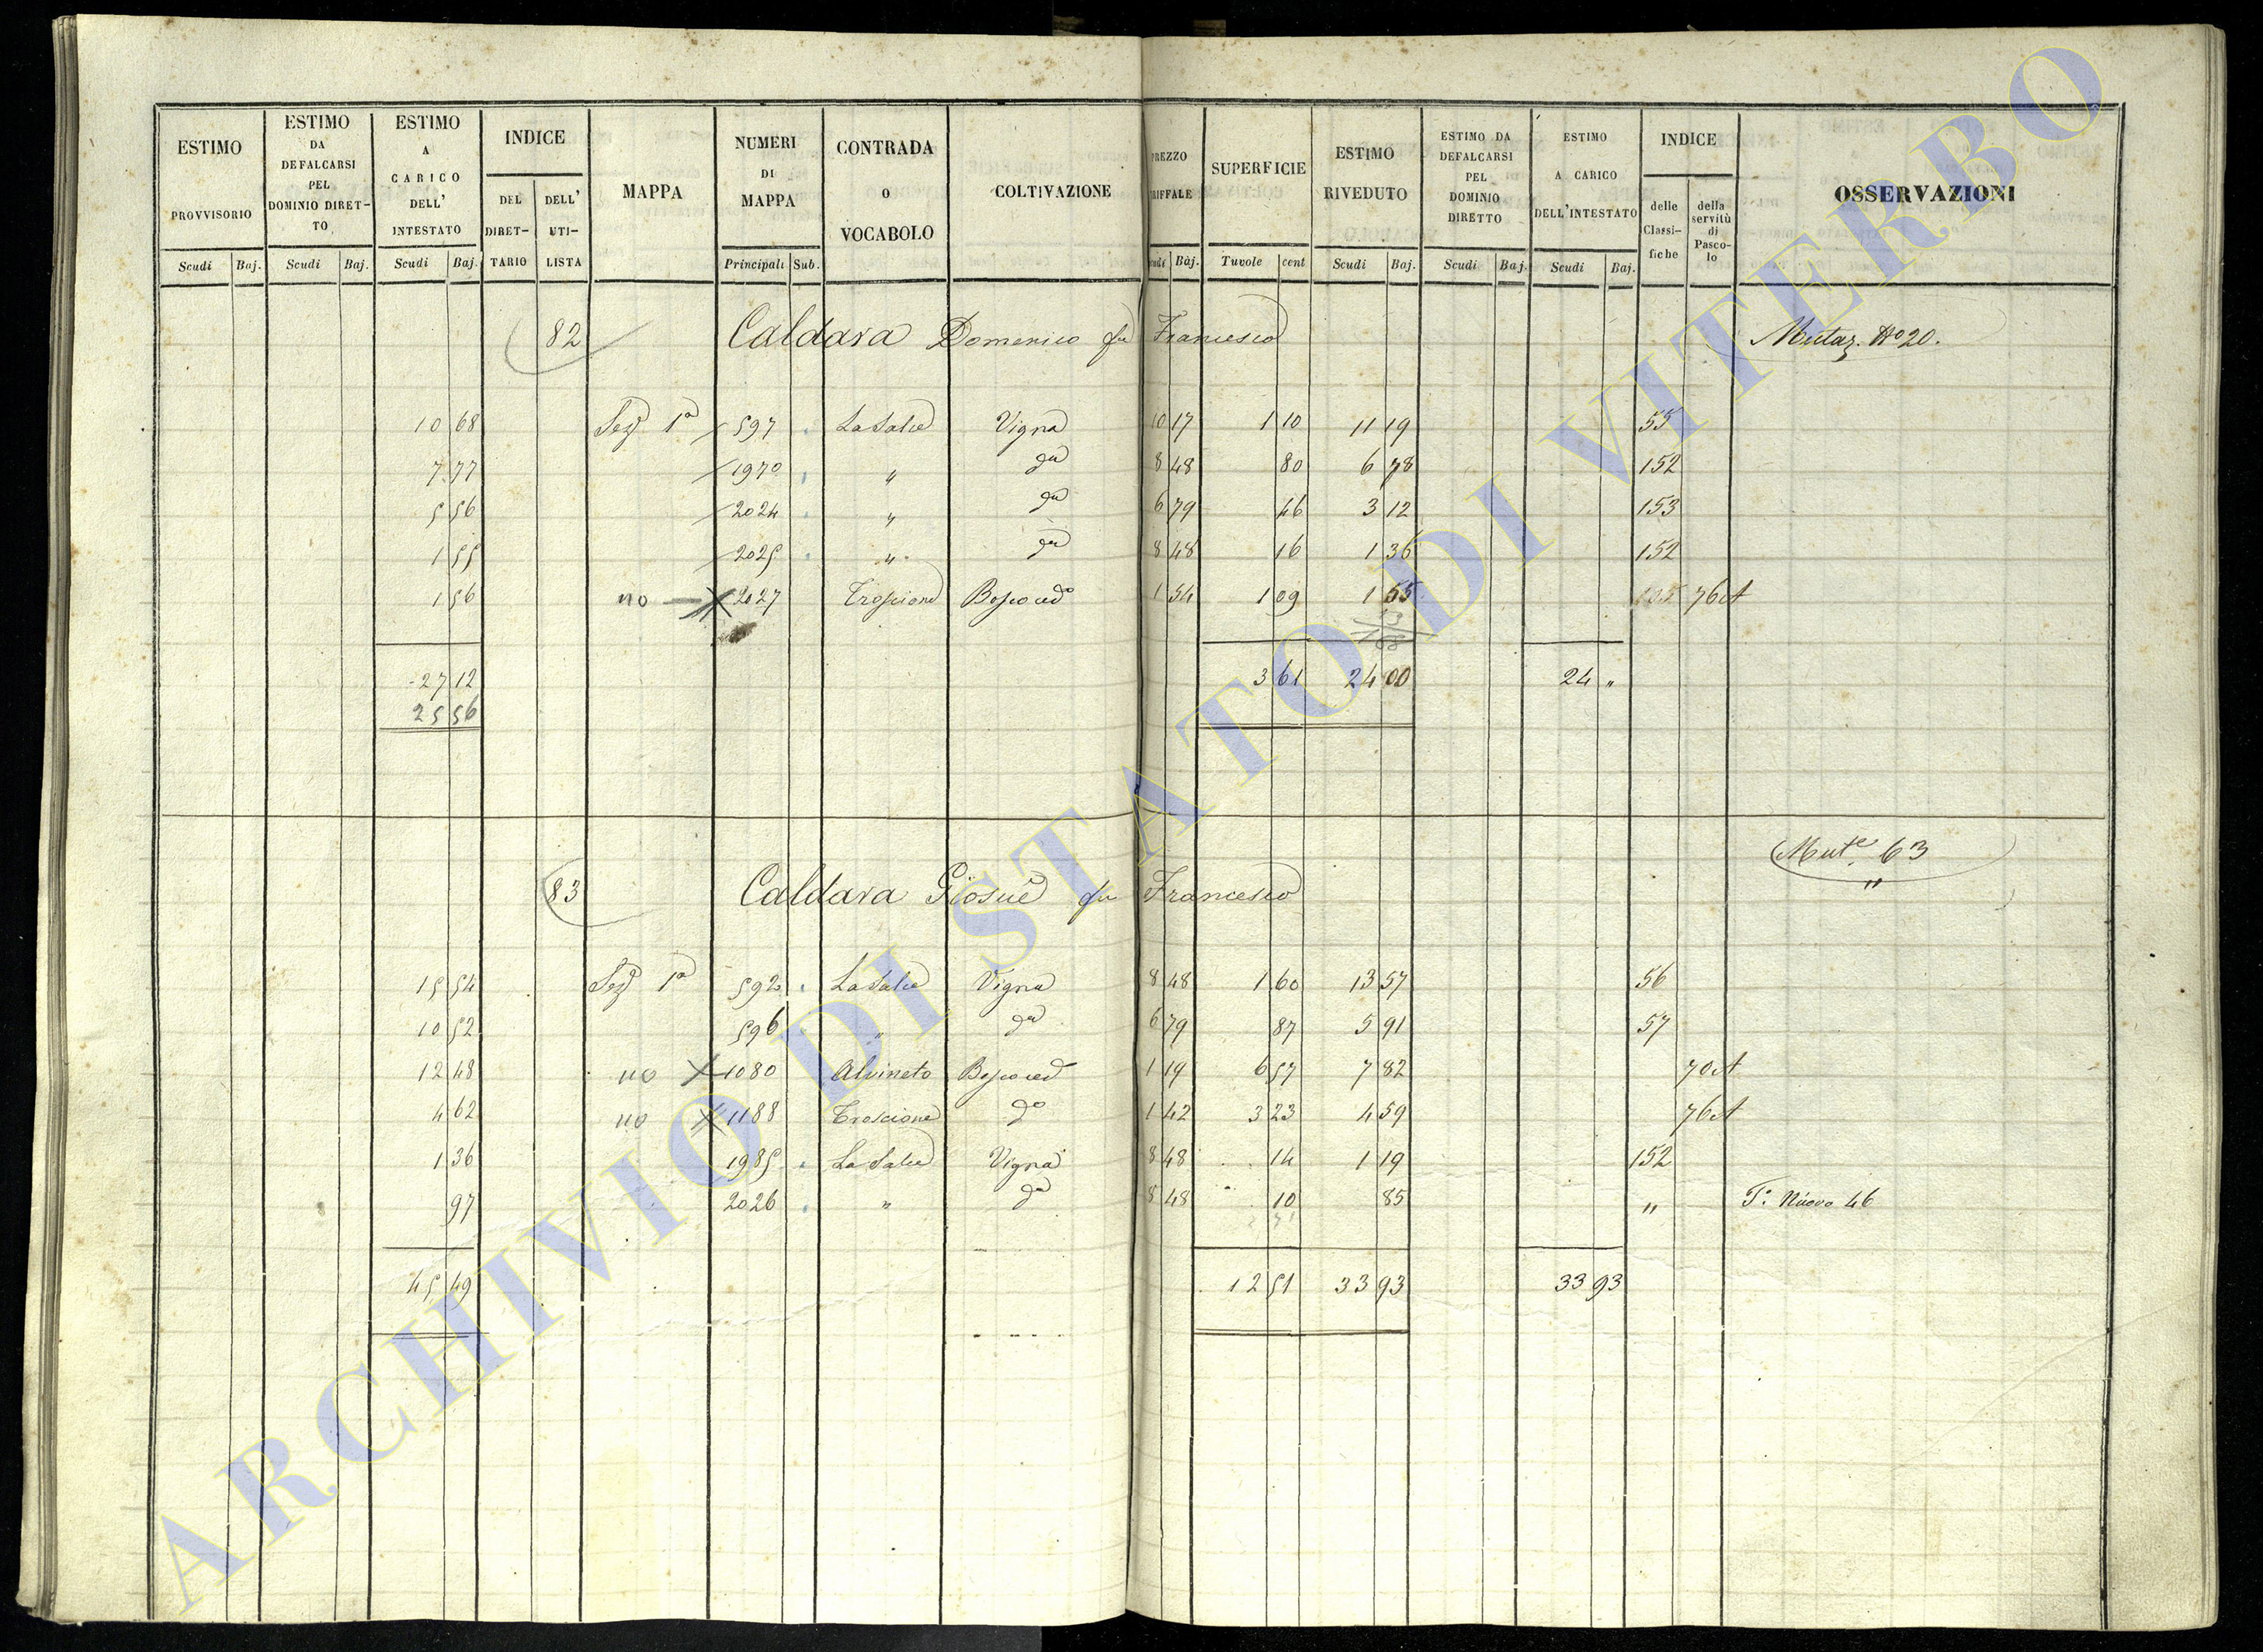 ESTIMO PROVVISORIO
ESTIMO DA DEFALCARSI PEL DOMINIO DIRETTO
ESTIMO A CARICO DELL' INTESTATO
INDICE
DEL DIRETTARIO
DELL' UTILISTA
MAPPA
NUMERI DI MAPPA
CONTRADA O VOCABOLO
COLTIVAZIONE
PREZZO RIFFALE
SUPERFICIE
ESTIMO RIVEDUTO
ESTIMO DA DEFALCARSI PEL DOMINIO DIRETTO
ESTIMO A CARICO DELL'INTESTATO
INDICE
delle Classifiche
della servitù di Pascolo
OSSERVAZIONI
Scudi Baj. Scudi Baj. Scudi Baj. Principali Sub. Baj. Tavole cent Scudi Baj. Scudi Baj. Scudi Baj.
82 Caldara Domenico fu Francesco Mutaz. No 20.
10 68 Sez 1a 597 La Salce Vigna 10 17 1 10 11 19 55
7 77 1970 " da 8 48 80 6 78 152
5 56 2024 " da 6 79 46 3 12 153
1 55 2025 " da 8 48 16 1 36 152
1 56 no 2027 Troscione Bosco ced 1 54 1 09 1 55 76 A
27 12 3 61 24 00 24 "
25 56
83 Caldara Giosuè fu Francesco Mute 63
"
15 54 Sez 1a 592 La Salce Vigna 8 48 1 60 13 57 56
10 52 596 " da 6 79 87 5 91 57
12 48 no 1080 Alvineto Bosco ced 1 19 6 57 7 82 70 A
4 62 no 1188 Troscione do 1 42 3 23 4 59 76 A
1 36 1985 La Salce Vigna 8 48 14 1 19 152
97 2026 " da 8 48 10 85 " T. Nuovo 46
45 49 12 51 33 93 33 93
ARCHIVIO DI STATO DI VITERBO